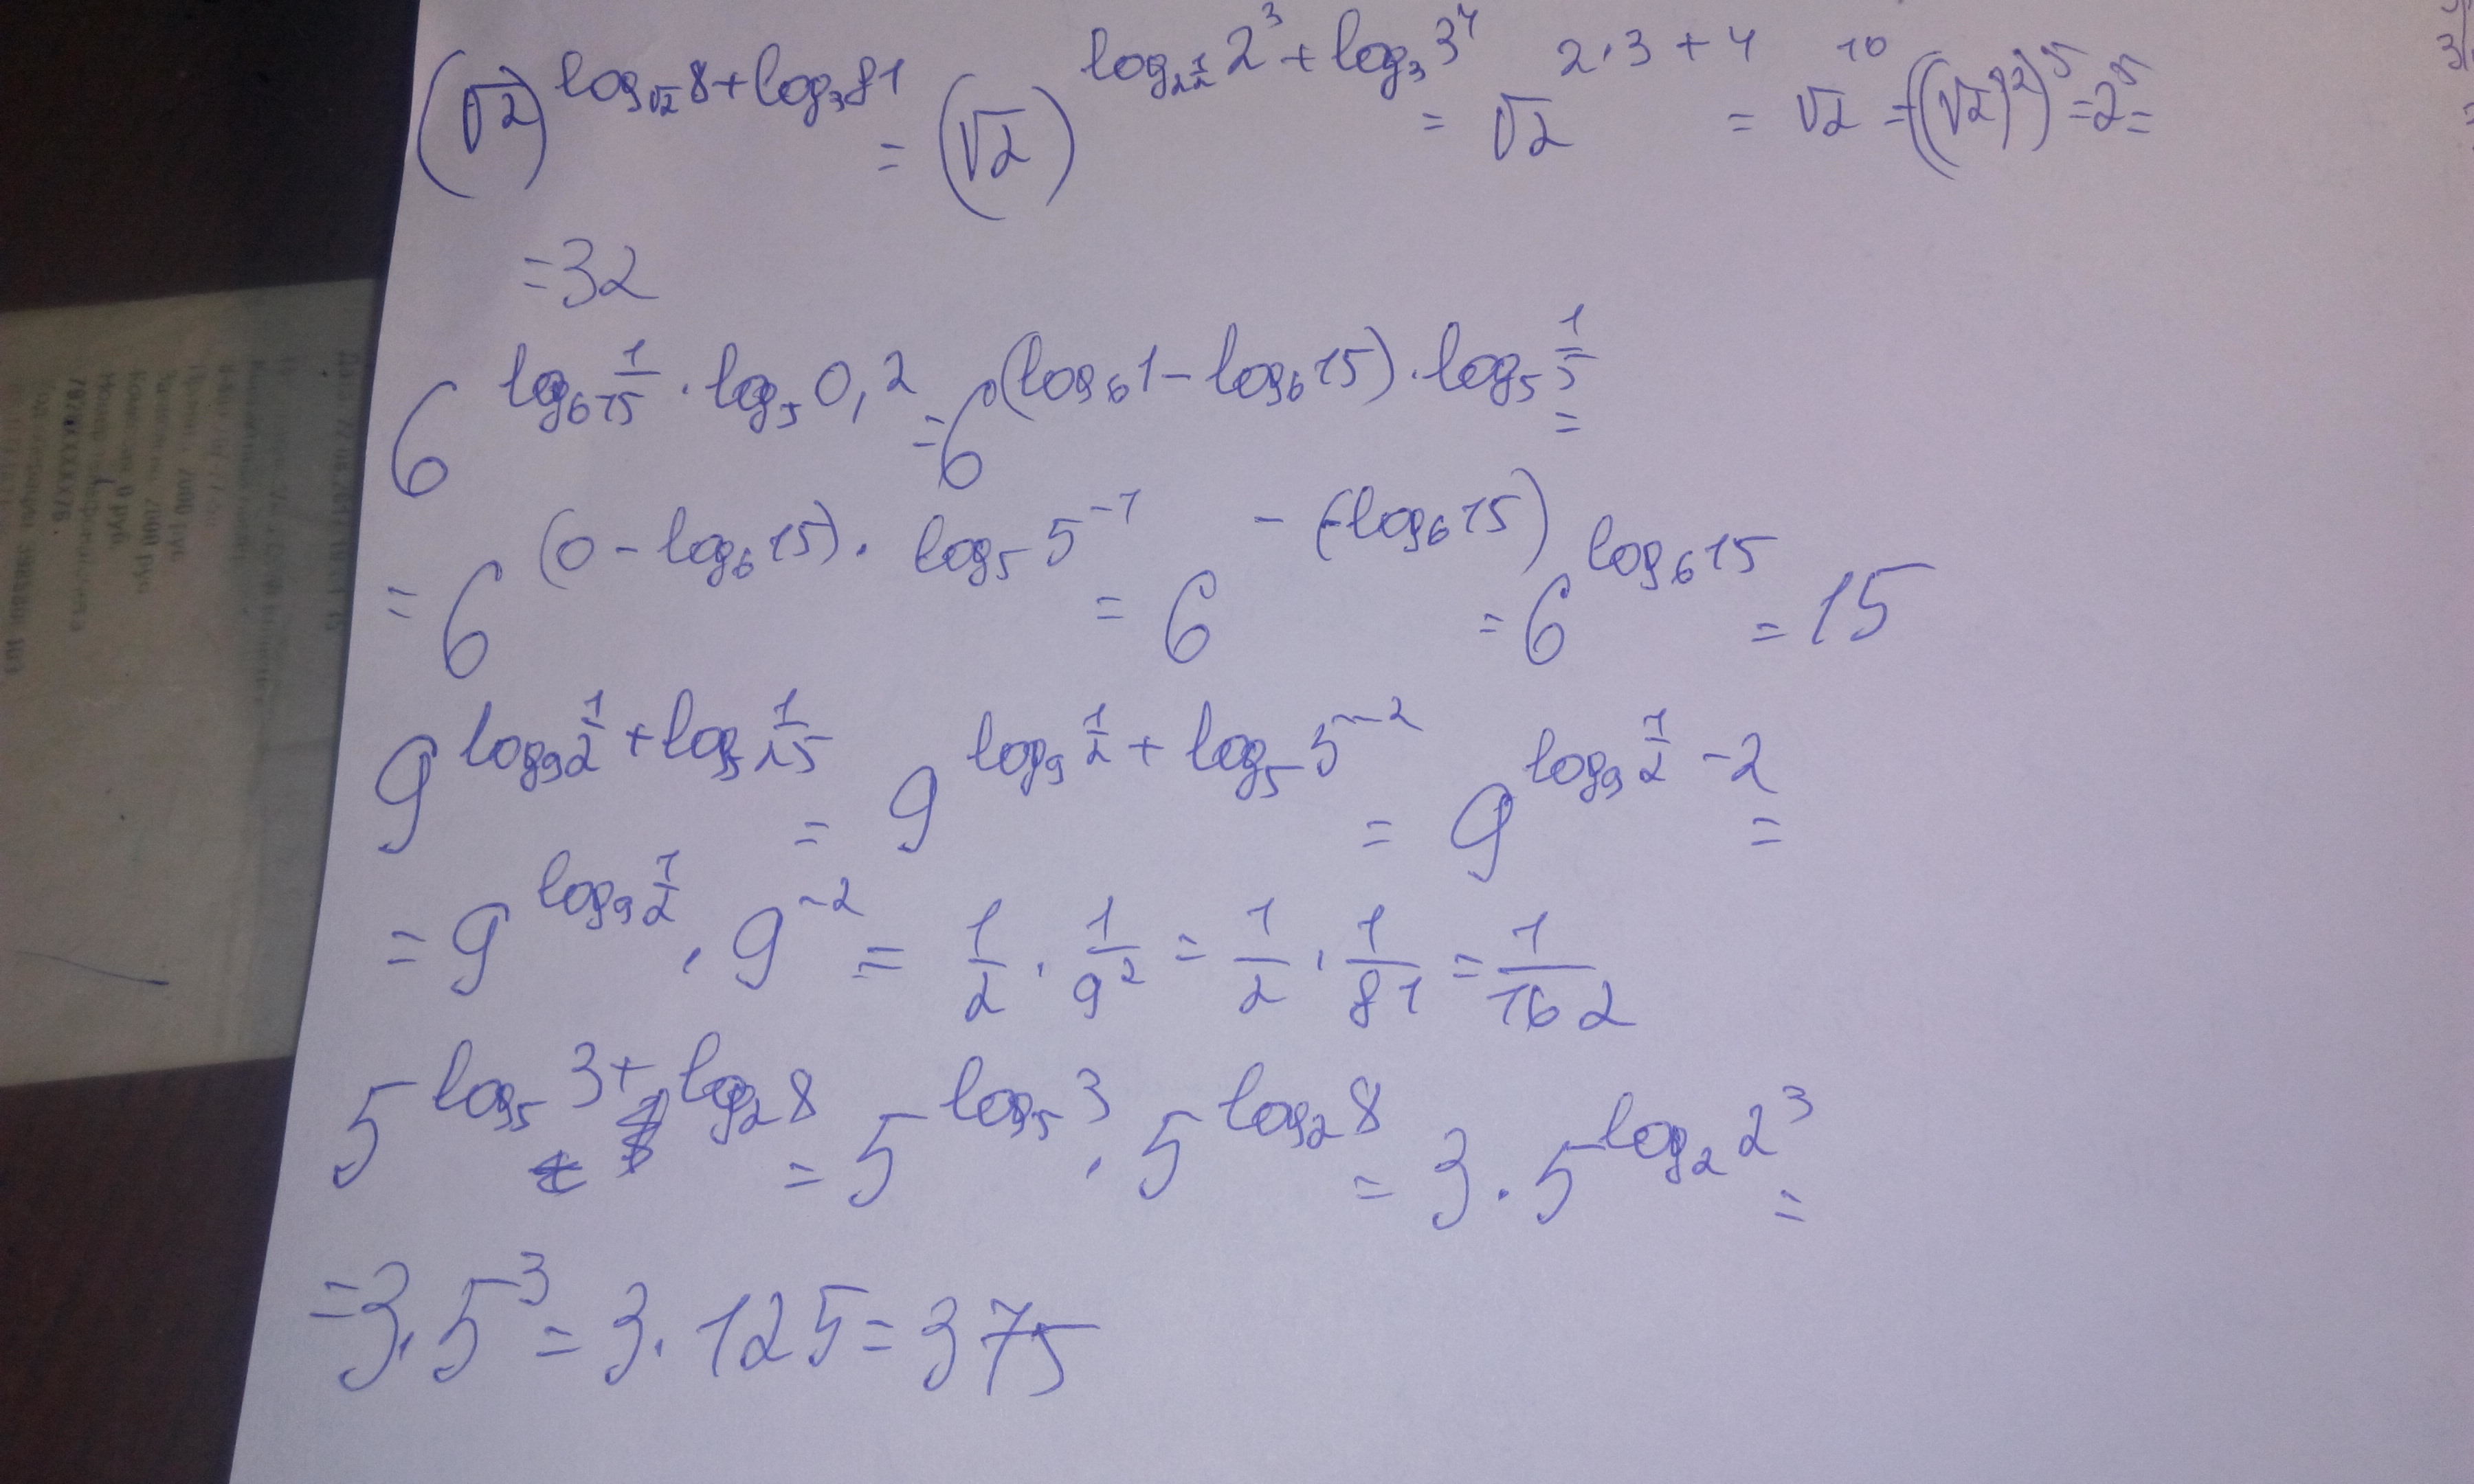 (√2)^(log_√2 8 + log_3 81) = (√2)^(log_2^(1/2) 2^3 + log_3 3^4) = √2^(2·3+4) = √2^10 = ((√2)^2)^5 = 2^5 =
= 32
6^(log_6 1/15 · log_5 0,2) = 6^((log_6 1 - log_6 15) · log_5 1/5) =
= 6^((0 - log_6 15) · log_5 5^-1) = 6^(-(-log_6 15)) = 6^(log_6 15) = 15
9^(log_9 1/2 + log_5 1/25) = 9^(log_9 1/2 + log_5 5^-2) = 9^(log_9 1/2 - 2) =
= 9^(log_9 1/2) · 9^-2 = 1/2 · 1/9^2 = 1/2 · 1/81 = 1/162
5^(log_5 3 + log_2 8) = 5^(log_5 3) · 5^(log_2 8) = 3 · 5^(log_2 2^3) =
= 3 · 5^3 = 3 · 125 = 375